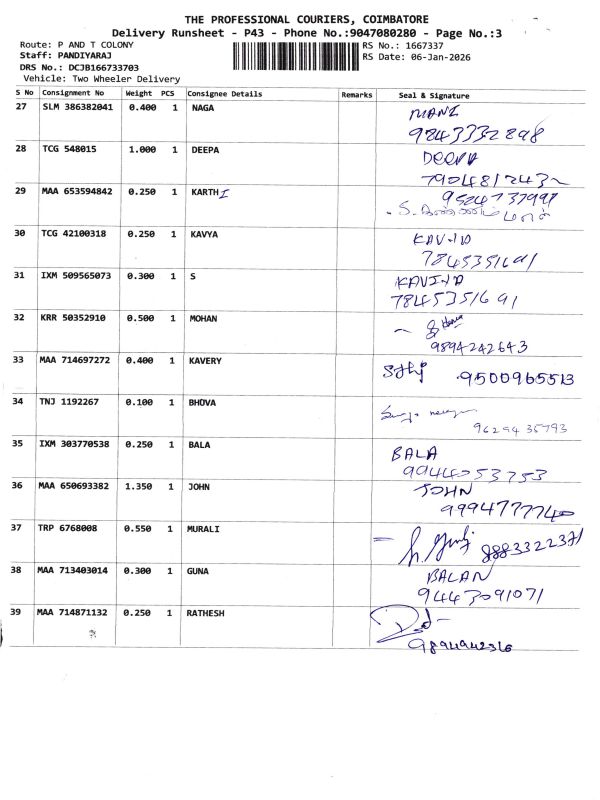 THE PROFESSIONAL COURIERS, COIMBATORE
Delivery Runsheet - P43 - Phone No.:9047080280 - Page No.:3
Route: P AND T COLONY
RS No.: 1667337
Staff: PANDIYARAJ
RS Date: 06-Jan-2026
DRS No.: DCJB166733703
Vehicle: Two Wheeler Delivery
S No Consignment No Weight PCS Consignee Details Remarks Seal & Signature
27 SLM 386382041 0.400 1 NAGA MANI
9843332898
28 TCG 548015 1.000 1 DEEPA DEEPA
29 MAA 653594842 0.250 1 KARTHI
30 TCG 42100318 0.250 1 KAVYA
31 IXM 509565073 0.300 1 S
7845351691
32 KRR 50352910 0.500 1 MOHAN
9894242643
33 MAA 714697272 0.400 1 KAVERY
9500965513
34 TNJ 1192267 0.100 1 BHOVA
9629435793
35 IXM 303770538 0.250 1 BALA BALA
9944053753
36 MAA 650693382 1.350 1 JOHN JOHN
9994777740
37 TRP 6768008 0.550 1 MURALI
8883322371
38 MAA 713403014 0.300 1 GUNA BALAN
9443091071
39 MAA 714871132 0.250 1 RATHESH